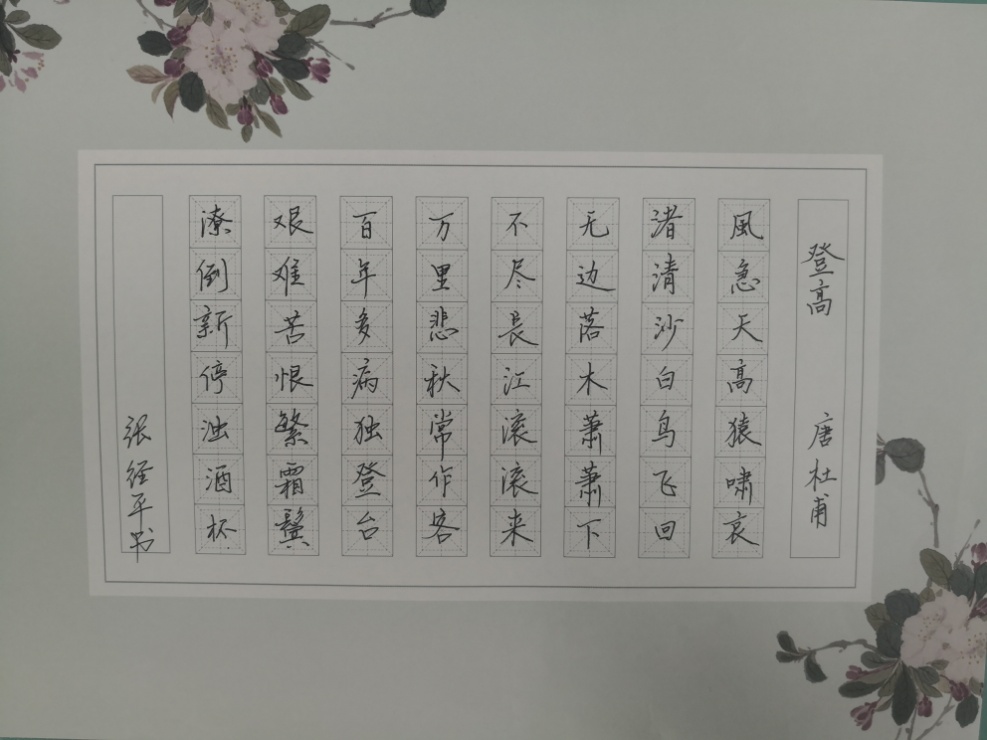 登高 唐杜甫
風急天高猿啸哀
渚清沙白鸟飞回
无边落木萧萧下
不尽長江滚滚来
万里悲秋常作客
百年多病独登台
艰难苦恨繁霜鬓
潦倒新停浊酒杯
张经平书